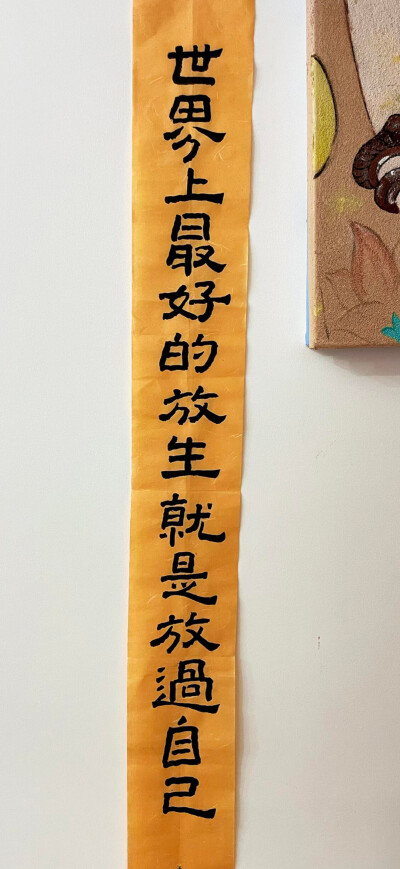 世界上最好的放生就是放過自己